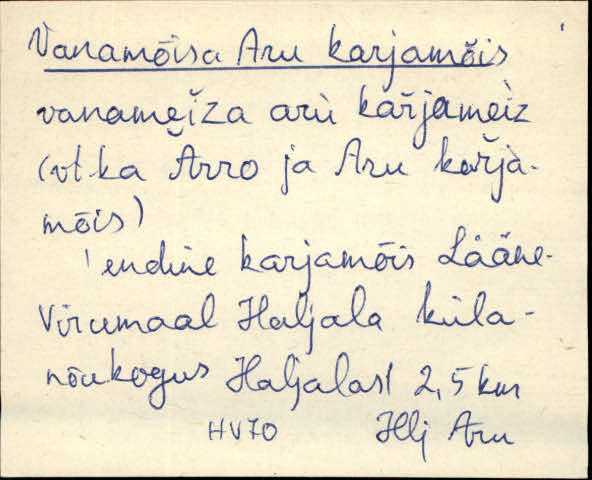 Vanamõisa Aru karjamõis
vanameĭza arù kařjameìz
(vt.ka Ařro ja Aru kařja-
mõis)
'endine karjamõis Lääne-
Virumaal Haljala küla-
nõukogus Haljalast 2,5 km
HV70 Hlj Aru